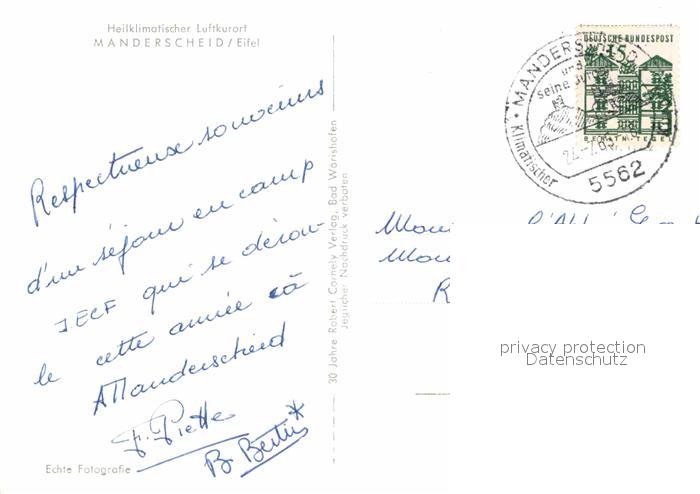 Heilklimatischer Luftkurort
MANDERSCHEID/Eifel
Respectueux souvenirs
d'un séjour en camp
JECF qui se dérou-
le cette année à
Manderscheid
F. Piette
B. Bertin
Echte Fotografie
30 Jahre Robert Cornely Verlag, Bad Wörrishofen
Jeglicher Nachdruck verboten
DEUTSCHE BUNDESPOST
15
BERLIN-TEGEL
MANDERSCHEID
und
seine Burgen
Klimatischer
5562
privacy protection
Datenschutz